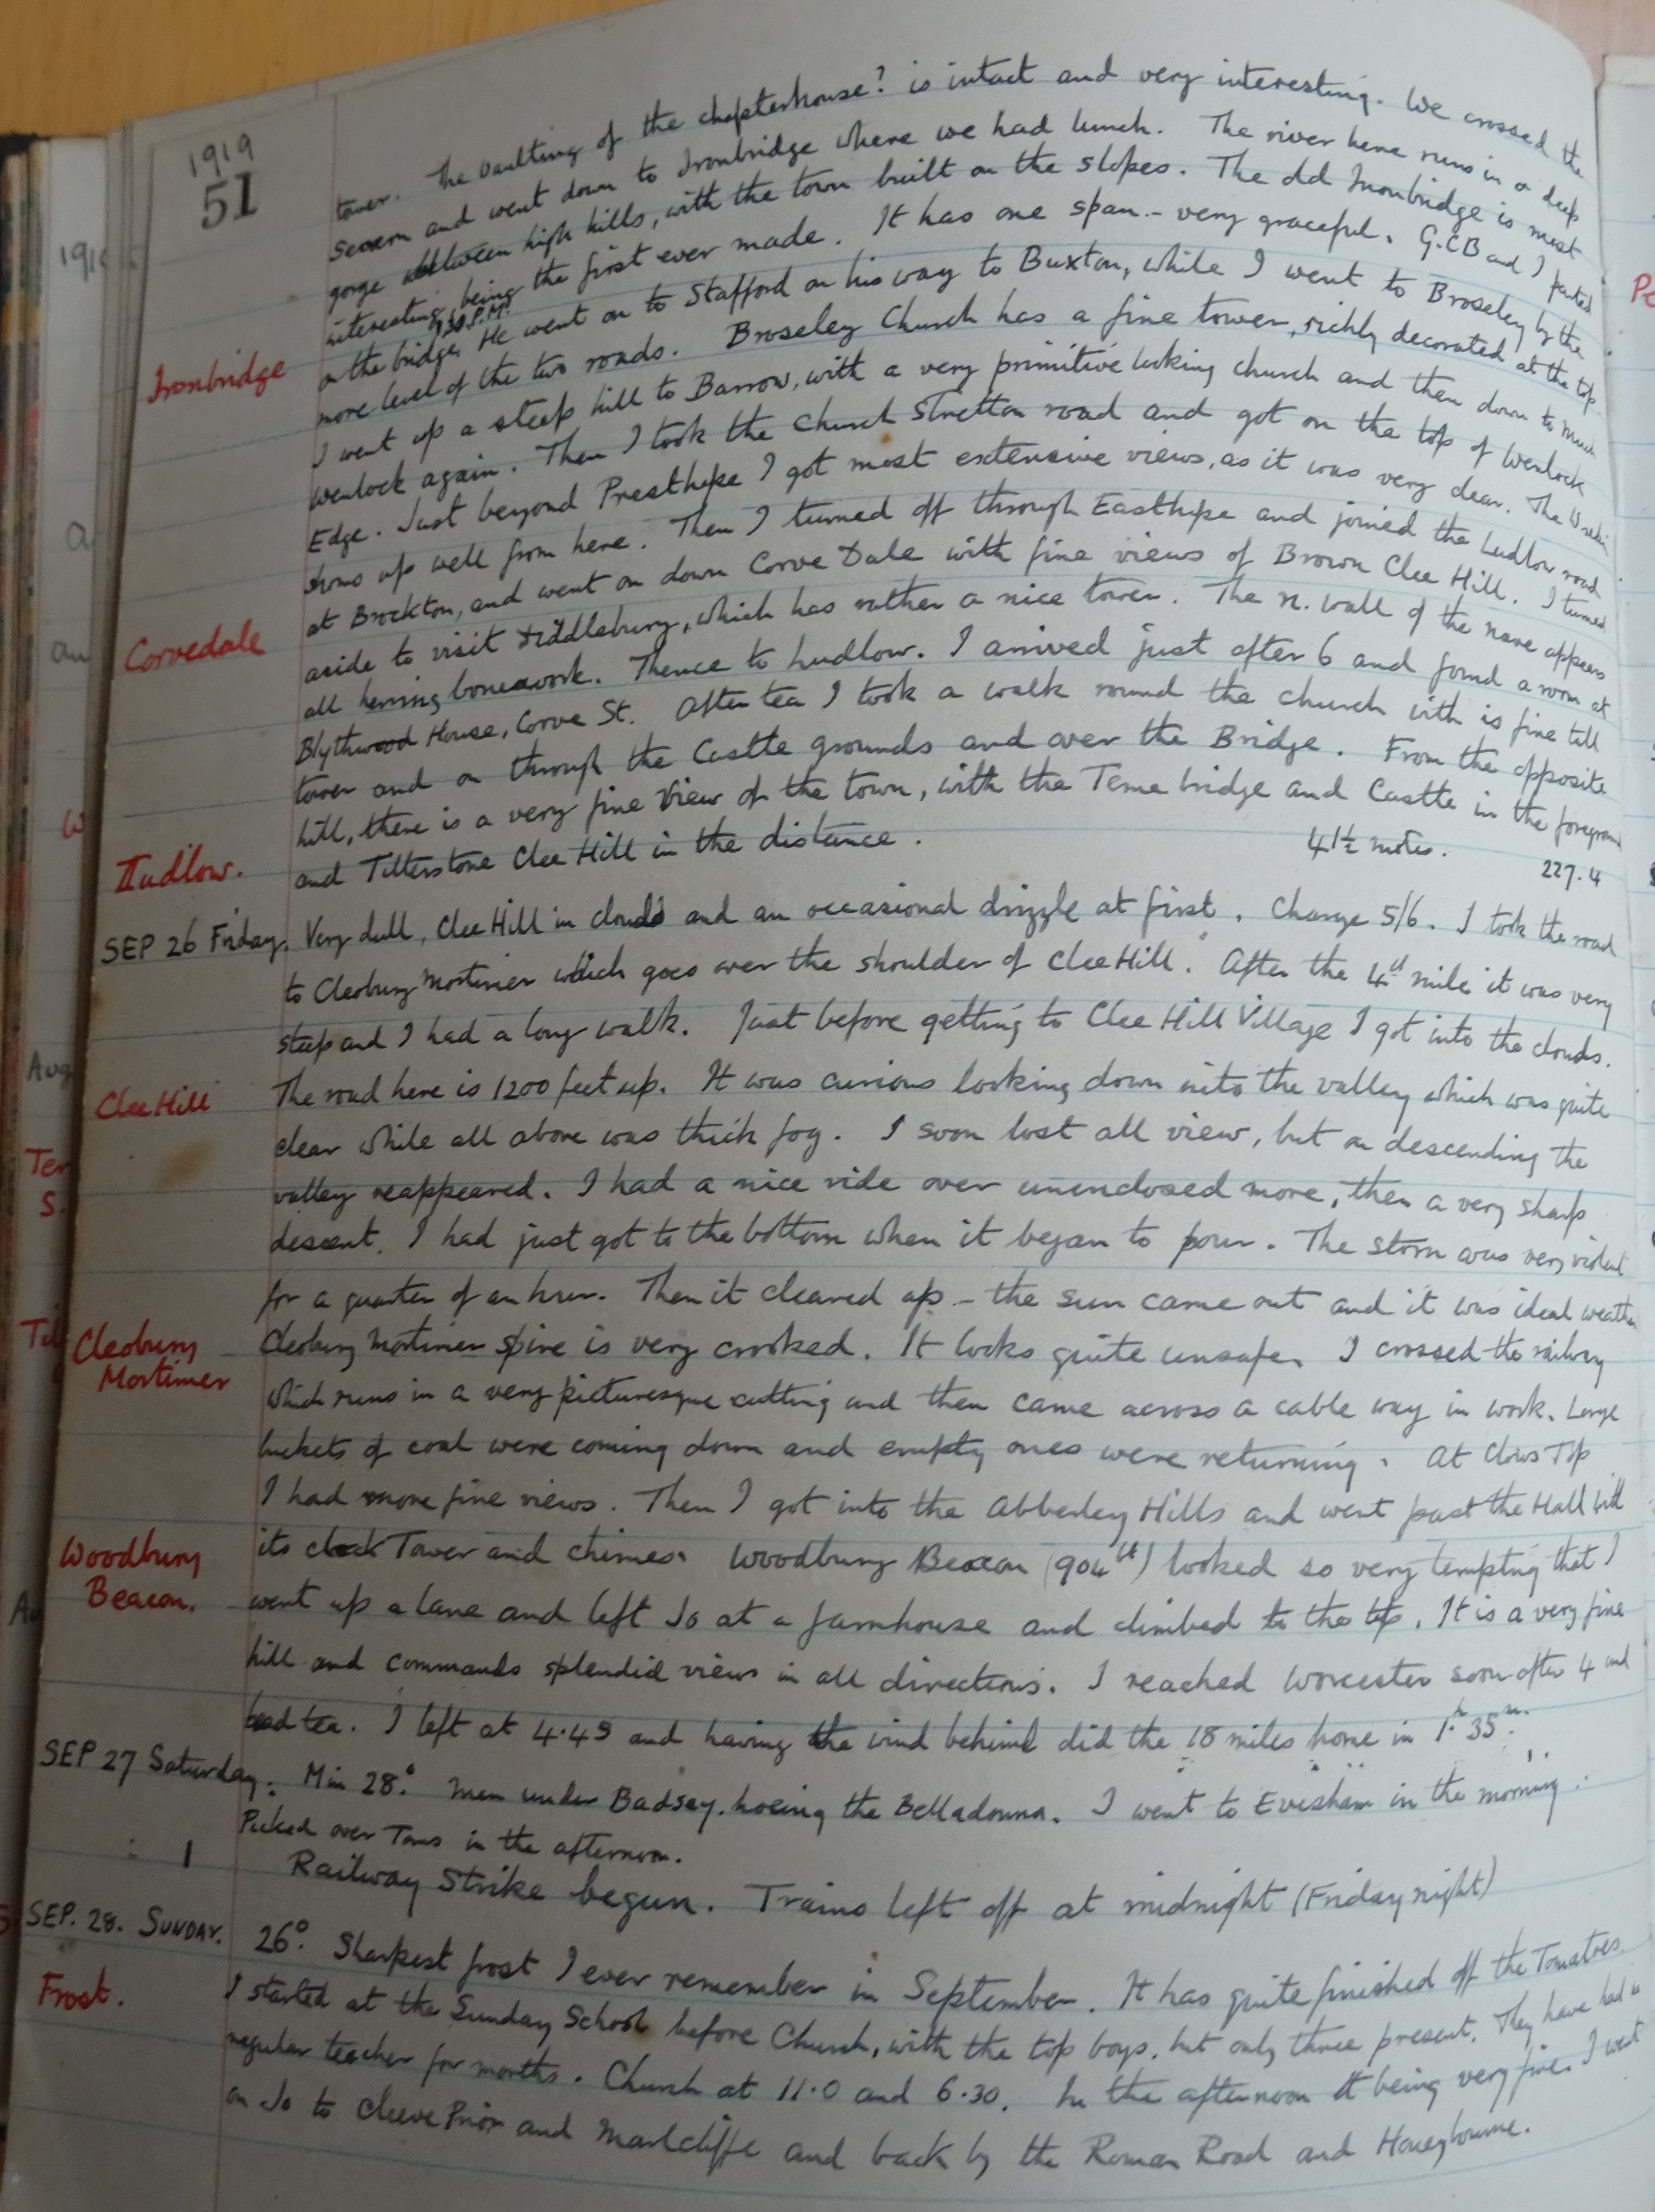 1919
51
tower. The vaulting of the chapterhouse? is intact and very interesting. We crossed the
Severn and went down to Ironbridge where we had lunch. The river here runs in a deep
gorge between high hills, with the town built on the slopes. The old Ironbridge is most
interesting, being the first ever made. It has one span - very graceful. G.C.B and I parted
on the bridge, 1.30 P.M. He went on to Stafford on his way to Buxton, while I went to Broseley by the
Ironbridge
more level of the two roads. Broseley Church has a fine tower, richly decorated at the top.
I went up a steep hill to Barrow, with a very primitive looking church and then down to Much
Wenlock again. Then I took the Church Stretton road and got on the top of Wenlock
Edge. Just beyond Presthope I got most extensive views, as it was very clear. The Wrekin
shows up well from here. Then I turned off through Easthope and joined the Ludlow road
at Brockton, and went on down Corve Dale with fine views of Brown Clee Hill. I turned
Corvedale
aside to visit Diddlebury, which has rather a nice tower. The N. wall of the nave appears
all herring bonework. Thence to Ludlow. I arrived just after 6 and found a room at
Blythwood House, Corve St. After tea I took a walk round the church with is fine tall
tower and on through the Castle grounds and over the Bridge. From the opposite
hill, there is a very fine view of the town, with the Teme bridge and Castle in the foreground
Ludlow.
and Titterstone Clee Hill in the distance. 41½ miles.
227.4
SEP 26 Friday. Very dull, Clee Hill in clouds and an occasional drizzle at first. Charge 5/6. I took the road
to Cleobury Mortimer which goes over the shoulder of Clee Hill. After the 4th mile it was very
steep and I had a long walk. Just before getting to Clee Hill Village I got into the clouds.
Clee Hill
The road here is 1200 feet up. It was curious looking down into the valley which was quite
clear while all above was thick fog. I soon lost all view, but on descending the
valley reappeared. I had a nice ride over unenclosed more, then a very sharp
descent. I had just got to the bottom when it began to pour. The storm was very violent
for a quarter of an hour. Then it cleared up - the sun came out and it was ideal weather
Cleobury Mortimer
Cleobury Mortimer spire is very crooked. It looks quite unsafe. I crossed the railway
which runs in a very picturesque cutting and then came across a cable way in work. Large
buckets of coal were coming down and empty ones were returning. At Clows Top
I had more fine views. Then I got into the Abberley Hills and went past the Hall with
Woodbury Beacon.
its clock Tower and chimes. Woodbury Beacon (904 ft) looked so very tempting that I
went up a lane and left Jo at a farmhouse and climbed to the top. It is a very fine
hill and commands splendid views in all directions. I reached Worcester soon after 4 and
had tea. I left at 4.45 and having the wind behind did the 18 miles home in 1h. 35m.
SEP 27 Saturday. Min 28°. Men under Badsey, hoeing the Belladonna. I went to Evesham in the morning.
Picked over Toms in the afternoon.
Railway Strike begun. Trains left off at midnight (Friday night)
SEP. 28. SUNDAY. 26°. Sharpest frost I ever remember in September. It has quite finished off the Tomatoes.
Frost.
I started at the Sunday School before Church, with the top boys, but only three present. They have had no
regular teacher for months. Church at 11.0 and 6.30. In the afternoon it being very fine I went
on Jo to Cleeve Prior and Marlcliffe and back by the Roman Road and Honeybourne.